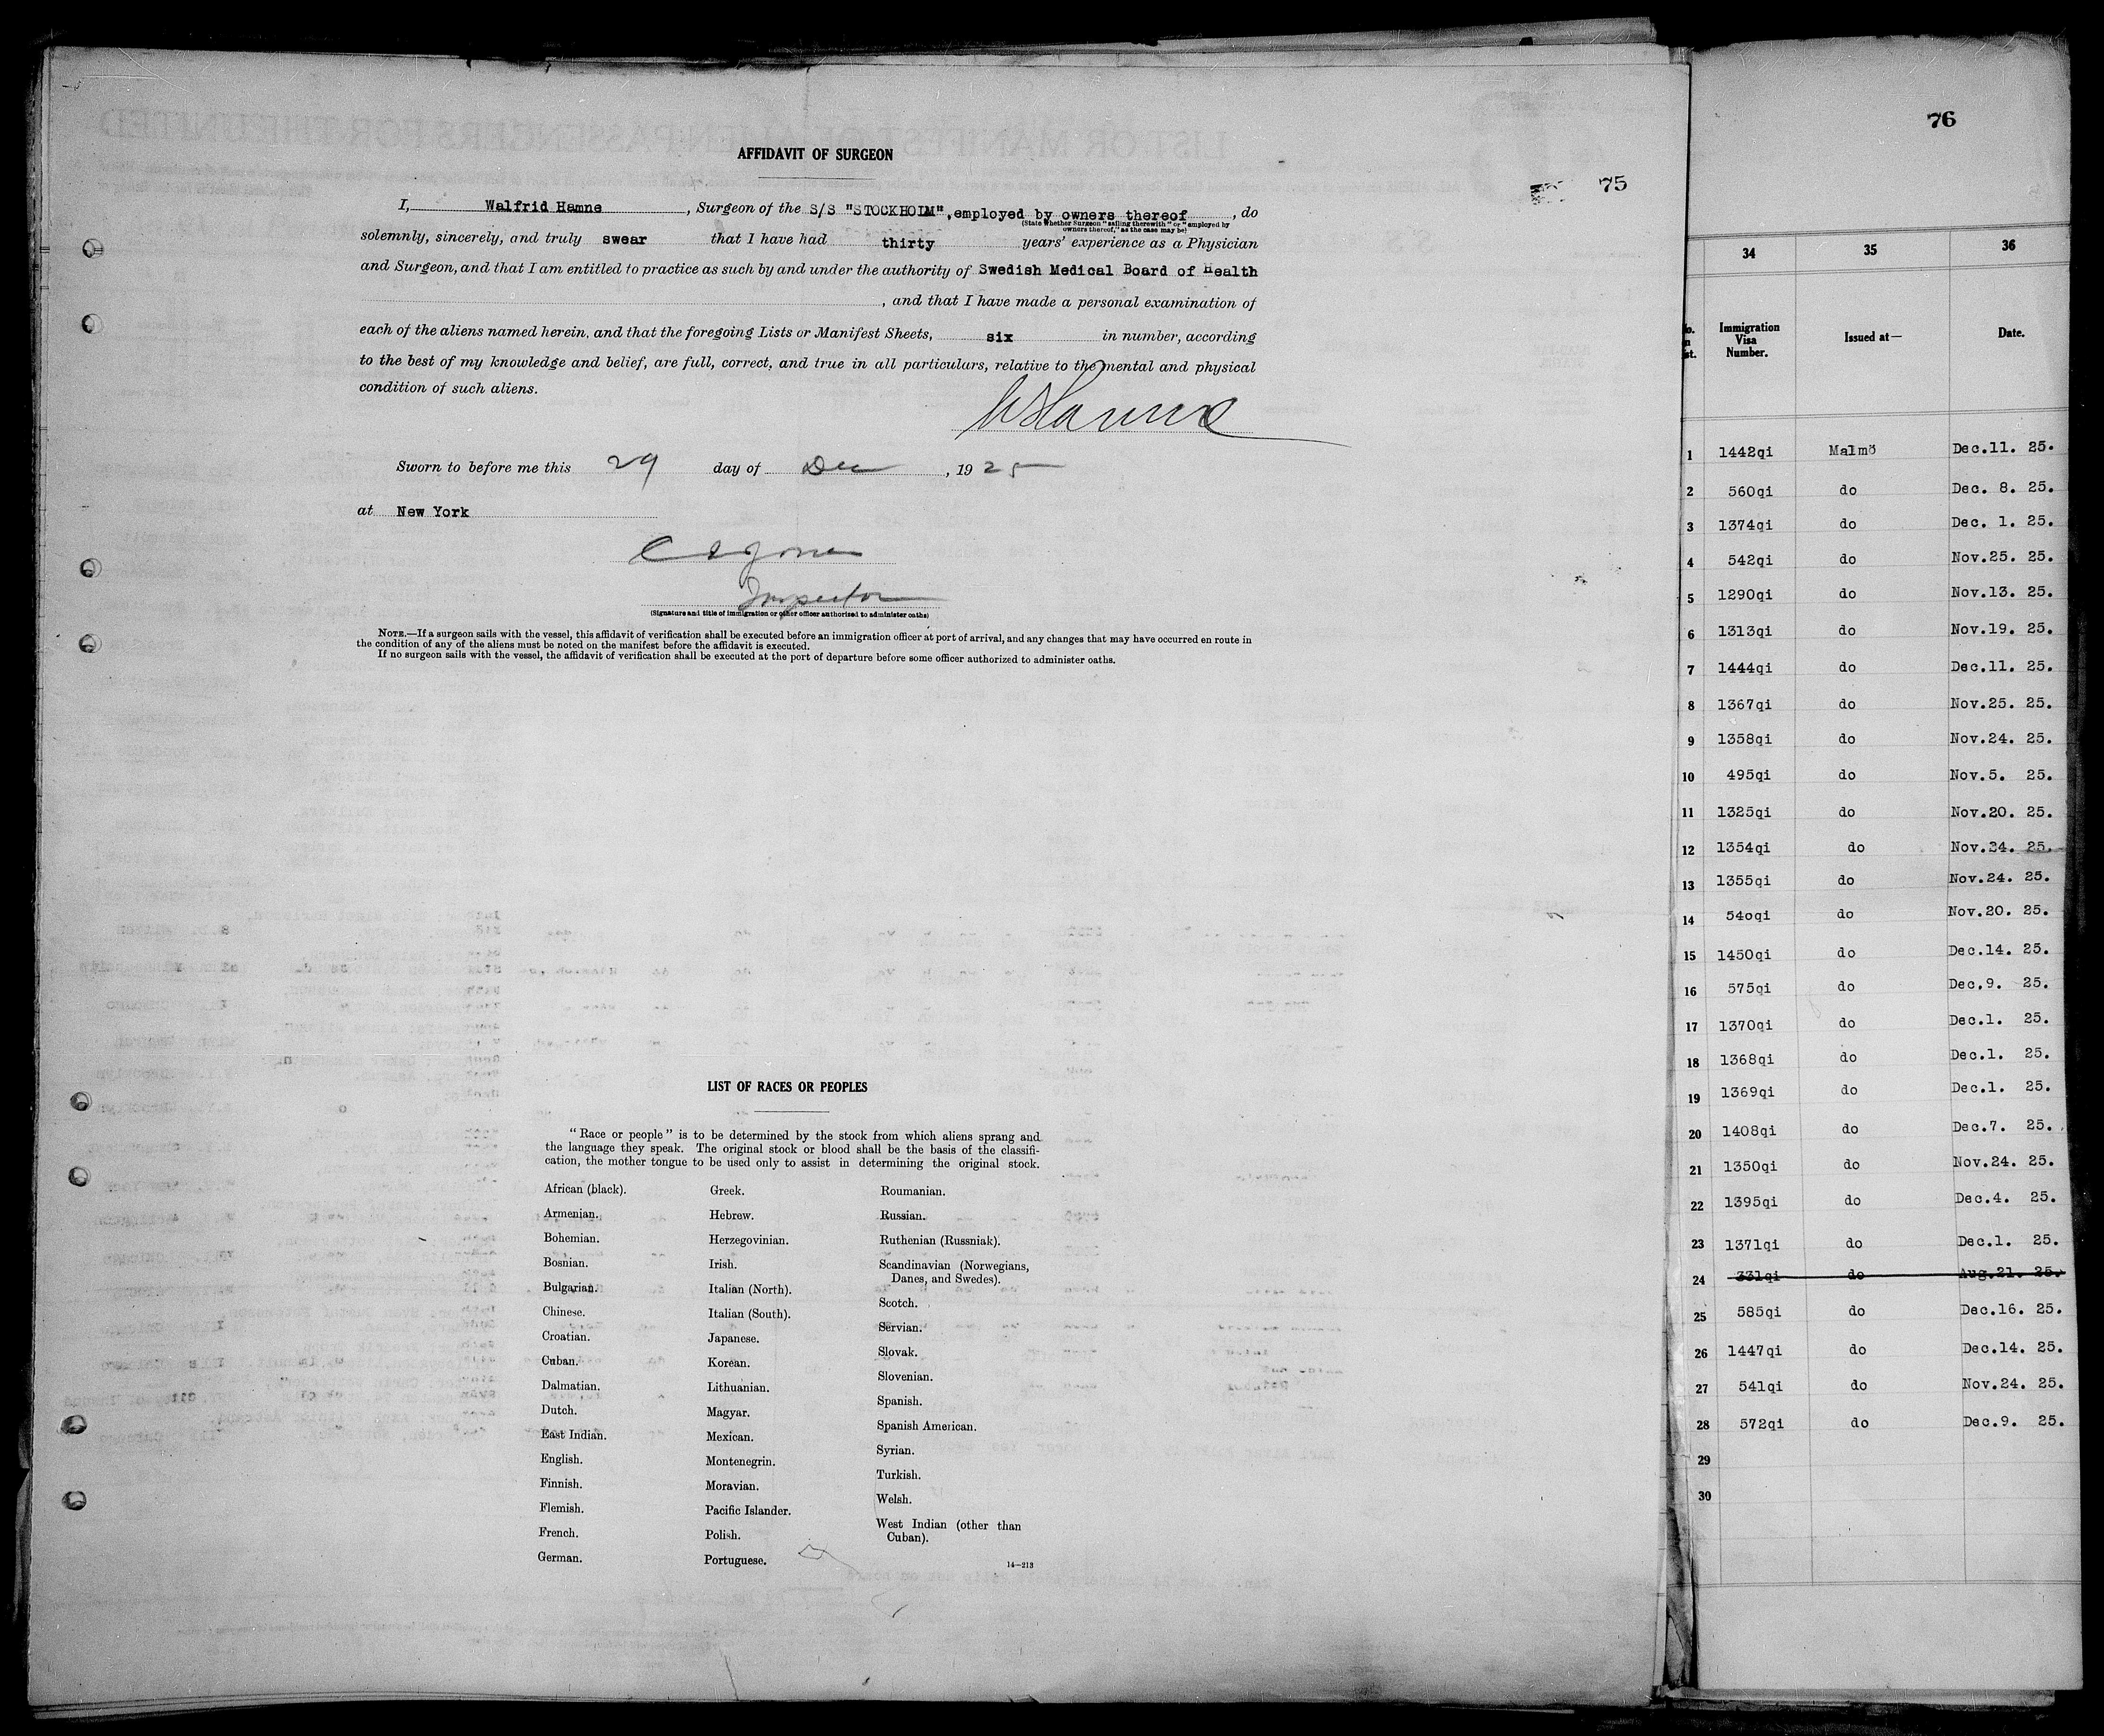 AFFIDAVIT OF SURGEON
75
I, Walfrid Hamne, Surgeon of the S/S "STOCKHOLM", employed by owners thereof, do
(State whether Surgeon "sailing therewith" or "employed by
owners thereof," as the case may be)
solemnly, sincerely, and truly swear that I have had thirty years' experience as a Physician
and Surgeon, and that I am entitled to practice as such by and under the authority of Swedish Medical Board of Health
, and that I have made a personal examination of
each of the aliens named herein, and that the foregoing Lists or Manifest Sheets, six in number, according
to the best of my knowledge and belief, are full, correct, and true in all particulars, relative to the mental and physical
condition of such aliens.
W Hamne
Sworn to before me this 29 day of Dec, 1925
at New York
Inspector
(Signature and title of immigration or other officer authorized to administer oaths)
NOTE.—If a surgeon sails with the vessel, this affidavit of verification shall be executed before an immigration officer at port of arrival, and any changes that may have occurred en route in
the condition of any of the aliens must be noted on the manifest before the affidavit is executed.
If no surgeon sails with the vessel, the affidavit of verification shall be executed at the port of departure before some officer authorized to administer oaths.
LIST OF RACES OR PEOPLES
"Race or people" is to be determined by the stock from which aliens sprang and
the language they speak. The original stock or blood shall be the basis of the classifi-
cation, the mother tongue to be used only to assist in determining the original stock.
African (black).
Armenian.
Bohemian.
Bosnian.
Bulgarian.
Chinese.
Croatian.
Cuban.
Dalmatian.
Dutch.
East Indian.
English.
Finnish.
Flemish.
French.
German.
Greek.
Hebrew.
Herzegovinian.
Irish.
Italian (North).
Italian (South).
Japanese.
Korean.
Lithuanian.
Magyar.
Mexican.
Montenegrin.
Moravian.
Pacific Islander.
Polish.
Portuguese.
Roumanian.
Russian.
Ruthenian (Russniak).
Scandinavian (Norwegians,
Danes, and Swedes).
Scotch.
Servian.
Slovak.
Slovenian.
Spanish.
Spanish American.
Syrian.
Turkish.
Welsh.
West Indian (other than
Cuban).
14—213
76
34 35 36
Immigration
Visa
Number.
Issued at—
Date.
1 1442qi Malmö Dec.11. 25.
2 560qi do Dec. 8. 25.
3 1374qi do Dec. 1. 25.
4 542qi do Nov.25. 25.
5 1290qi do Nov.13. 25.
6 1313qi do Nov.19. 25.
7 1444qi do Dec.11. 25.
8 1367qi do Nov.25. 25.
9 1358qi do Nov.24. 25.
10 495qi do Nov.5. 25.
11 1325qi do Nov.20. 25.
12 1354qi do Nov.24. 25.
13 1355qi do Nov.24. 25.
14 54oqi do Nov.20. 25.
15 1450qi do Dec.14. 25.
16 575qi do Dec.9. 25.
17 1370qi do Dec.1. 25.
18 1368qi do Dec.1. 25.
19 1369qi do Dec.1. 25.
20 1408qi do Dec.7. 25.
21 1350qi do Nov.24. 25.
22 1395qi do Dec.4. 25.
23 1371qi do Dec.1. 25.
24 331qi do Aug.21. 25.
25 585qi do Dec.16. 25.
26 1447qi do Dec.14. 25.
27 541qi do Nov.24. 25.
28 572qi do Dec.9. 25.
29
30